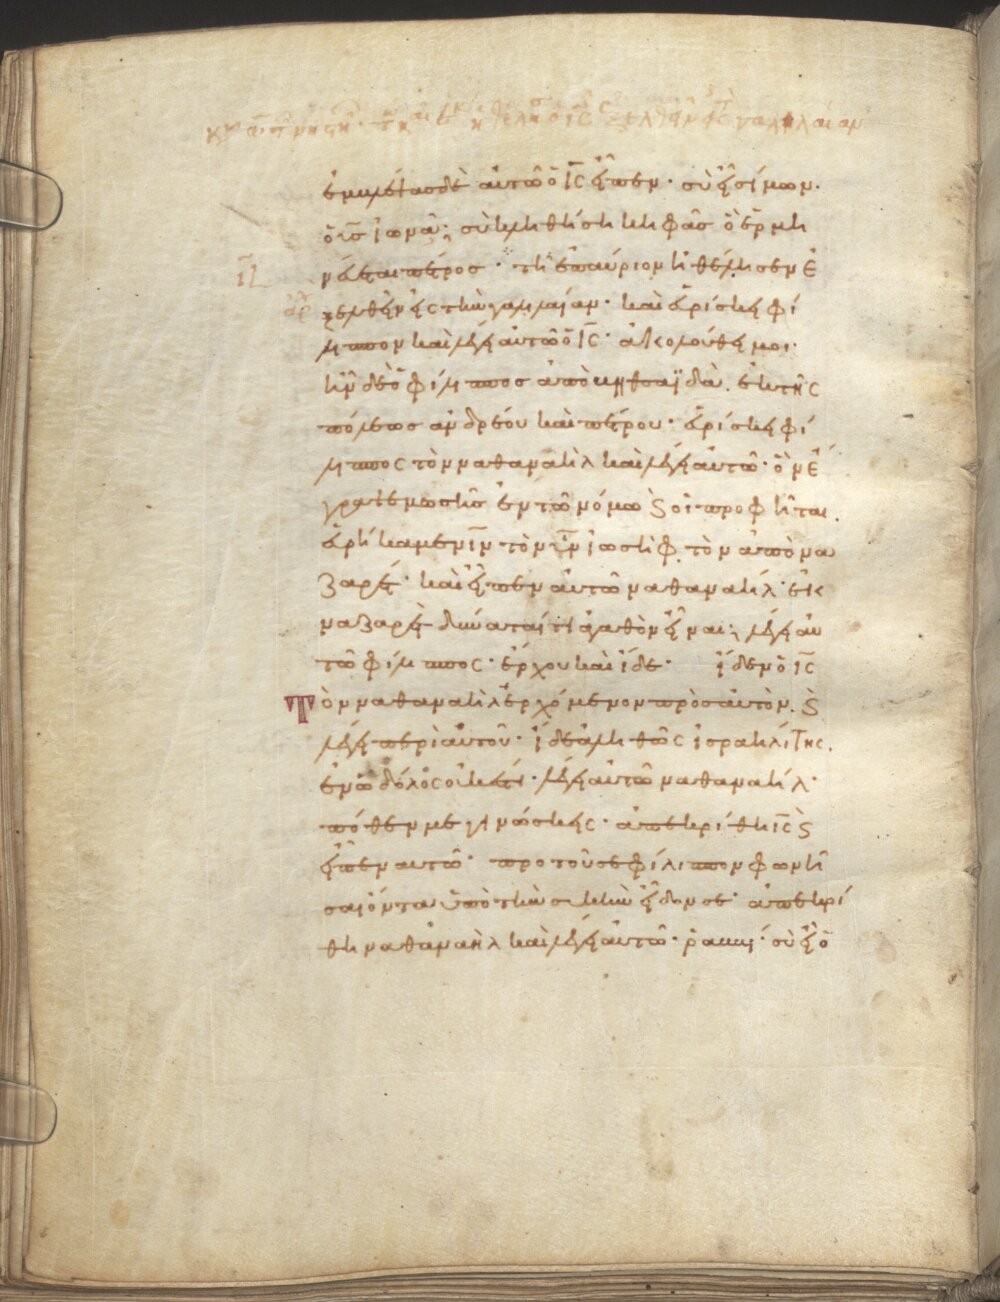 ἐμβλέψας δὲ αὐτῶ ὁ ις εἶπεν· σὺ εἶ σίμων·
ὁ υς ἰωνᾶ; σὺ κληθήση κηφᾶς ὃ ἑρμη
νεύεται πέτρος· τῆ ἐπαύριον ἠθέλησεν ἐ
ξελθεῖν εἰς τὴν γαλιλαίαν· καὶ εὑρίσκει φί
λιππον καὶ λέγει αὐτῶ ὁ ις· ἀκολούθει μοι·
ἦν δὲ ὁ φίλιππος ἀπὸ βηθσαϊδὰ. ἐκ τῆς
πόλεως ἀνδρέου καὶ πέτρου· εὑρίσκει φί
λιππος τὸν ναθαναὴλ καὶ λέγει αὐτῶ· ὃν ἔ
γραψε μωσῆς ἐν τῶ νόμω ϗ οἱ προφῆται.
εὑρήκαμεν ιν τὸν υν ἰωσὴφ τὸν ἀπὸ να
ζαρέτ· καὶ εἶπεν αὐτῶ ναθαναήλ· ἐκ
ναζαρὲτ δύναταί τι ἀγαθὸν εἶναι; λέγει αὐ
τῶ φίλιππος· ἔρχου καὶ ἴδε· ἴδεν ὁ ις
τὸν ναθαναὴλ ἐρχόμενον πρὸς αὐτὸν. ϗ
λέγει περὶ αὐτοῦ· ἴδε ἀληθῶς ἰσραηλίτης.
ἐν ὧ δόλος οὐκ ἔστι· λέγει αὐτῶ ναθαναήλ·
πόθεν με γινώσκεις· ἀπεκρίθη ις ϗ
εἶπεν αὐτῶ· προ τοῦ σε φίλιππον φωνῆ
σαι ὄντα ὑπὸ τὴν συκῆν εἶδον σε· ἀπεκρί
θη ναθαναὴλ καὶ λέγει αὐτῶ· ῥαββί· σὺ εἶ ὁ